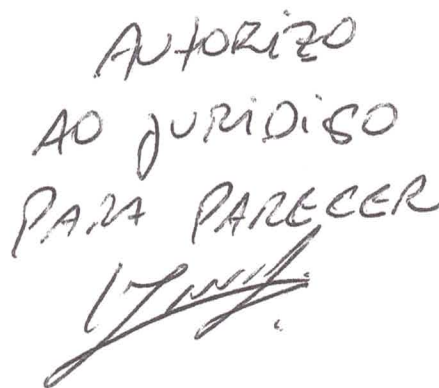 AUTORIZO
AO JURIDISO
PARA PARECER